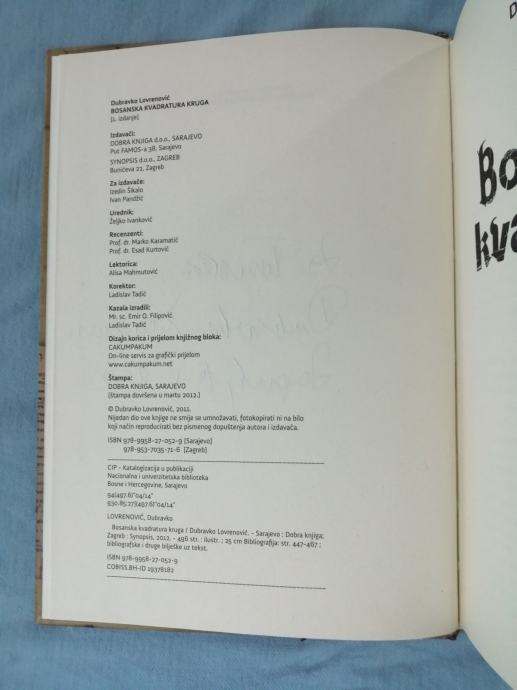 Dubravko Lovrenović
BOSANSKA KVADRATURA KRUGA
[1. izdanje]
Izdavači:
DOBRA KNJIGA d.o.o., SARAJEVO
Put FAMOS-a 38, Sarajevo
SYNOPSIS d.o.o., ZAGREB
Bunićeva 22, Zagreb
Za izdavače:
Izedin Šikalo
Ivan Pandžić
Urednik:
Željko Ivanković
Recenzenti:
Prof. dr. Marko Karamatić
Prof. dr. Esad Kurtović
Lektorica:
Alisa Mahmutović
Korektor:
Ladislav Tadić
Kazala izradili:
Mr. sc. Emir O. Filipović
Ladislav Tadić
Dizajn korica i prijelom knjižnog bloka:
CAKUMPAKUM
On-line servis za grafički prijelom
www.cakumpakum.net
Štampa:
DOBRA KNJIGA, SARAJEVO
[štampa dovršena u martu 2012.]
© Dubravko Lovrenović, 2011.
Nijedan dio ove knjige ne smije se umnožavati, fotokopirati ni na bilo
koji način reproducirati bez pismenog dopuštenja autora i izdavača.
ISBN 978-9958-27-052-9 [Sarajevo]
978-953-7035-71-6 [Zagreb]
CIP - Katalogizacija u publikaciji
Nacionalna i univerzitetska biblioteka
Bosne i Hercegovine, Sarajevo
94(497.6)"04/14"
930.85:27](497.6)"04/14"
LOVRENOVIĆ, Dubravko
Bosanska kvadratura kruga / Dubravko Lovrenović. - Sarajevo : Dobra knjiga;
Zagreb : Synopsis, 2012. - 496 str. : ilustr. ; 25 cm Bibliografija: str. 447-467 ;
bibliografske i druge bilješke uz tekst.
ISBN 978-9958-27-052-9
COBISS.BH-ID 19378182
D
Bo
kva